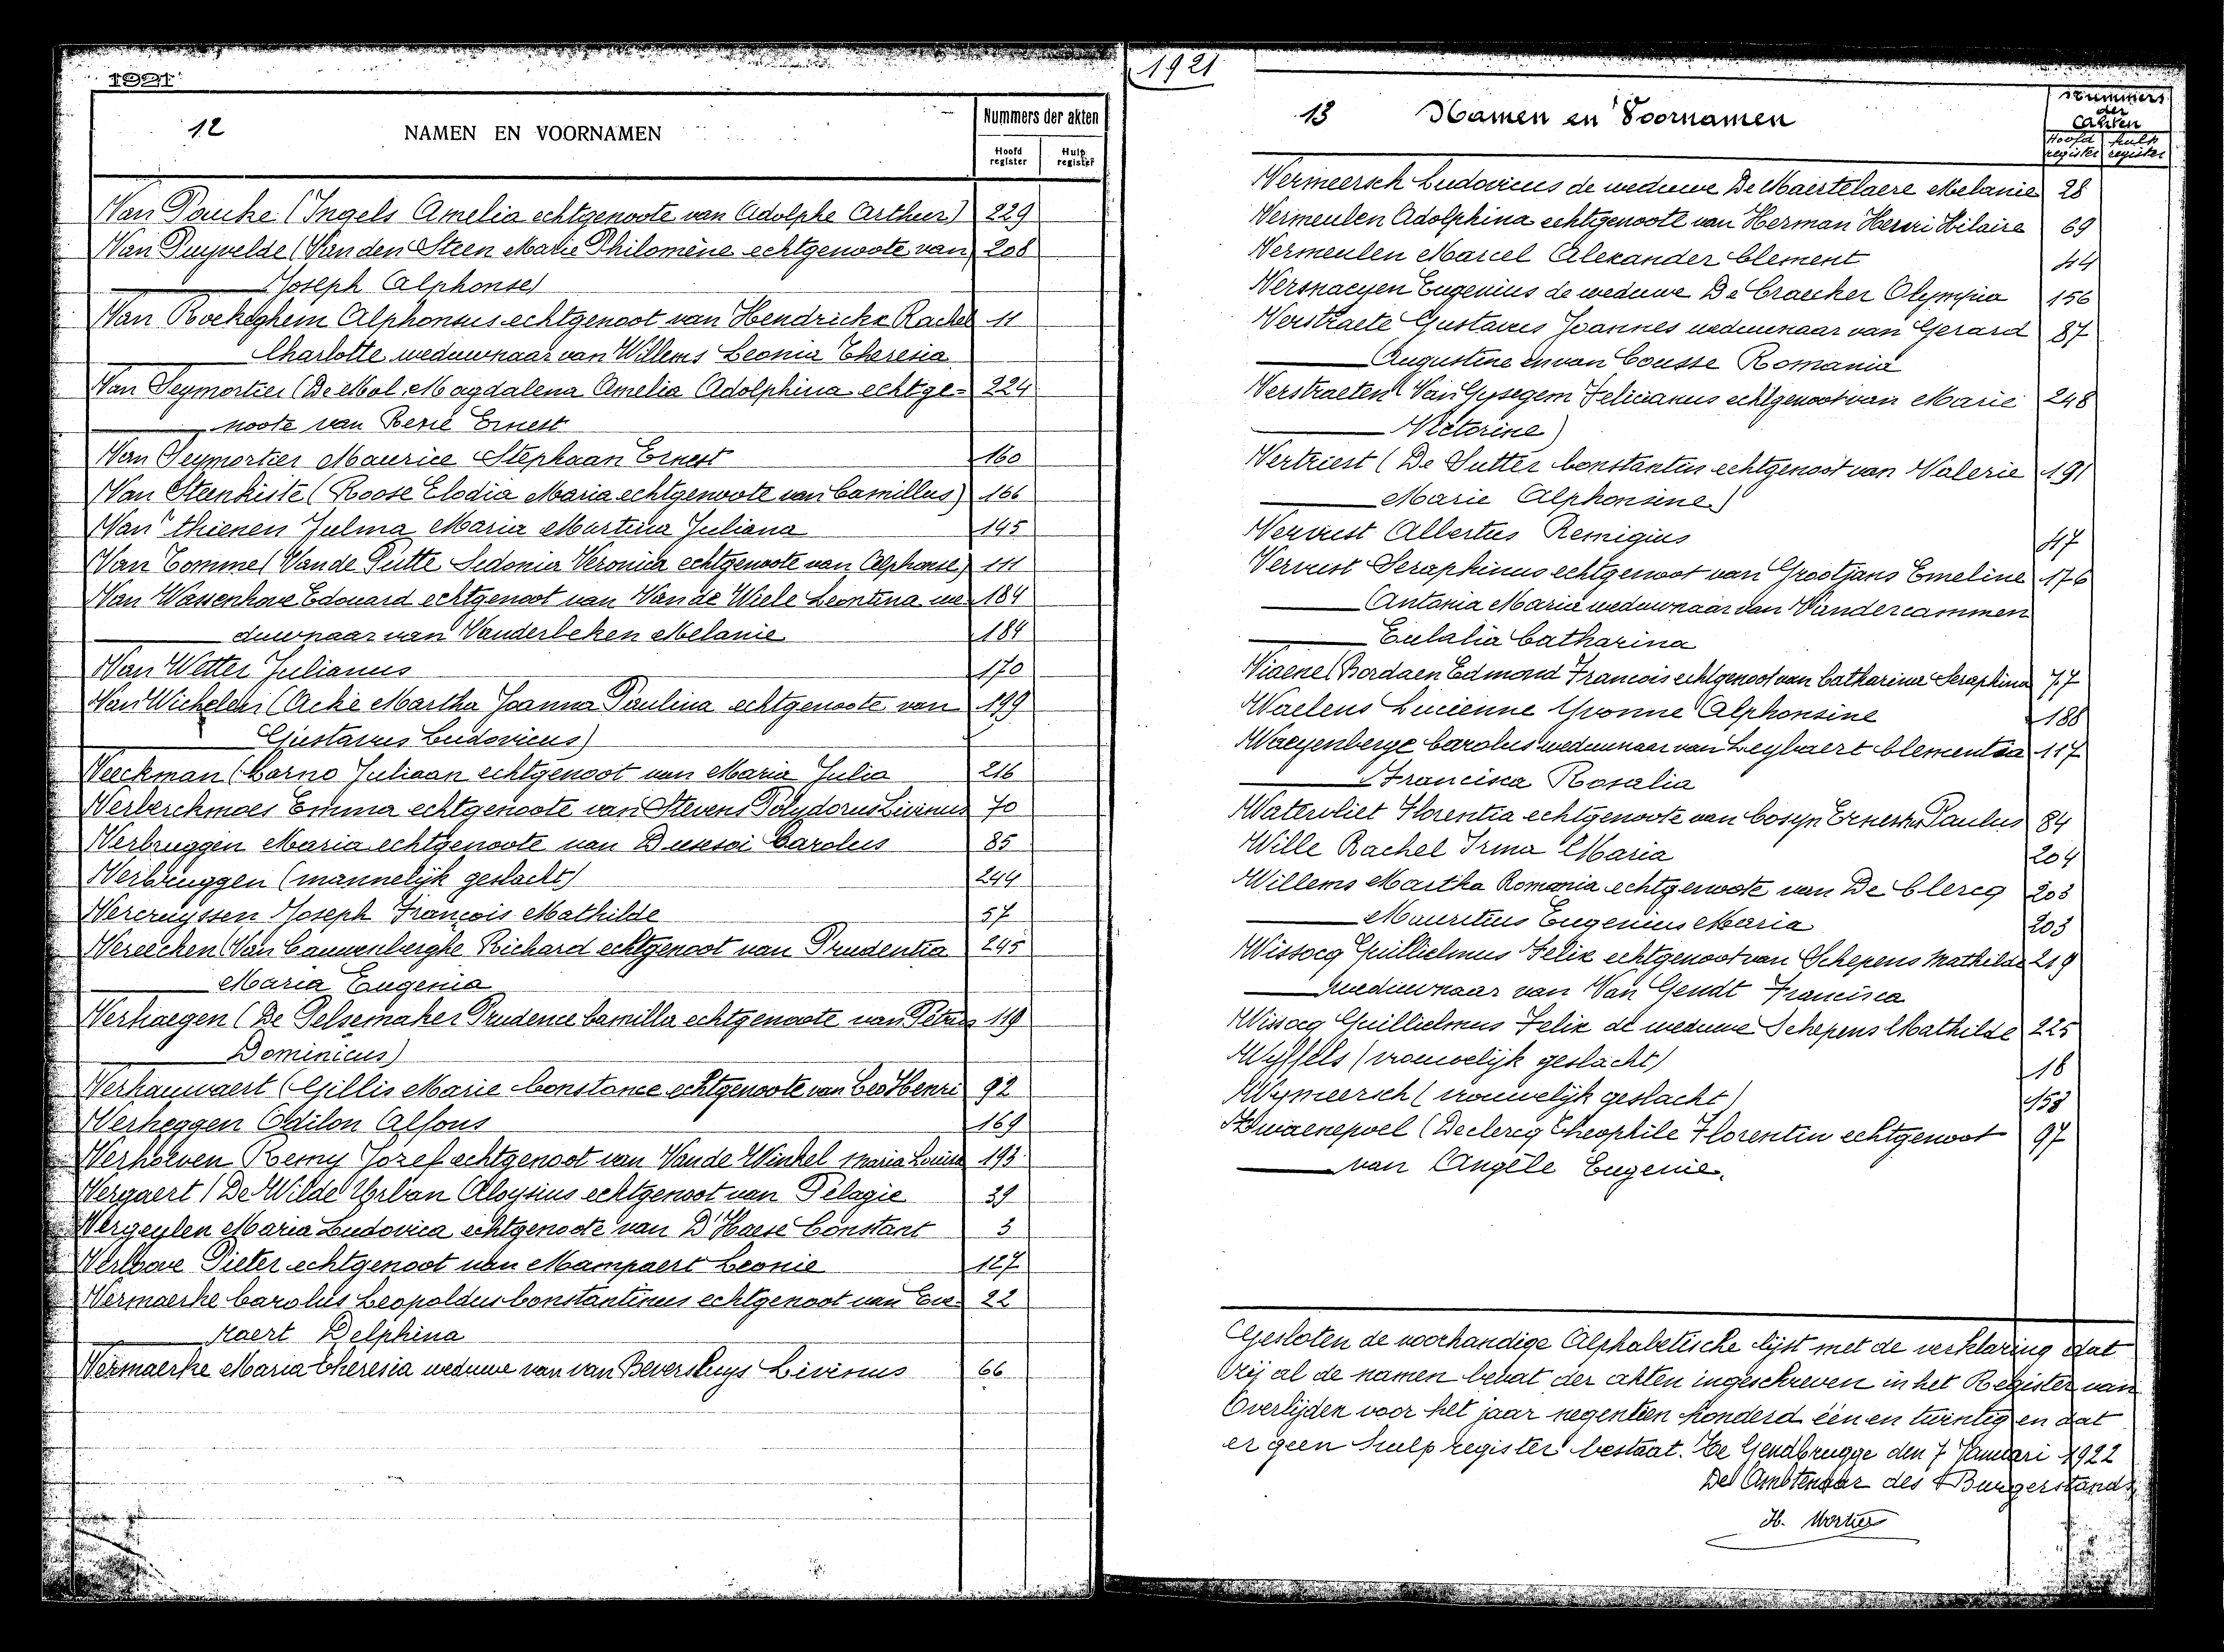 1921
12
NAMEN EN VOORNAMEN
Nummers der akten
Hoofd register
Hulp register
Van Pauke (Ingels Amelia echtgenoote van Adolphe Arthur) 229
Van Puyvelde (Van den Steen Marie Philomène echtgenoote van 208
Joseph Alphonse)
Van Rockeghem Alphonsus echtgenoot van Hendrickx Rachel 11
Charlotte weduwnaar van Willems Leonia Theresia
Van Seymortier (De Mol Magdalena Amelia Adolphina echtge= 224
noote van René Ernest
Van Seymortier Maurice Stephaan Ernest 160
Van Steenkiste (Roose Elodia Maria echtgenoote van Camillus) 166
Van thienen Julma Maria Martina Juliana 145
Van Tomme (Van de Putte Sedonia Veronica echtgenoote van Alphonse) 111
Van Wassenhove Edouard echtgenoot van Van de Wiele Leontina we 184
duwnaar van Vanderbeken Melanie 184
Van Wetter Julianus 170
Van Wichelen (Acke Martha Joanna Paulina echtgenoote van 199
Gustavus Ludovicus)
Veeckman (Carno Juliaan echtgenoot van Maria Julia 216
Verberckmoes Emma echtgenoote van Stevens Polydorus Livinus 70
Verbruggen Maria echtgenoote van Dusesoi Carolus 85
Verbruggen (mannelijk geslacht) 244
Vercruyssen Joseph François Mathilde 57
Vereecken (Van Cauwenberghe Richard echtgenoot van Prudentia 245
Maria Eugenia
Verhaegen (De Pelsemaker Prudence Camilla echtgenoote van Petrus 119
Dominicus)
Verhauwaert (Gillis Marie Constance echtgenoote van Leo Henri 92
Verheggen Odilon Alfons 169
Verhoeven Remy Jozef echtgenoot van Van de Winkel Maria Louisa 193
Vergaert (De Wilde Urban Aloysius echtgenoot van Pelagie 39
Vergeylen Maria Ludovica echtgenoote van D'Haese Constant 3
Verhove Pieter echtgenoot van Mampaert Leonie 127
Vermaerke Carolus Leopoldus Constantinus echtgenoot van Eve= 22
raert Delphina
Vermaerke Maria Theresia weduwe van van Beversluys Livinus 66
1921
13
Namen en Voornamen
Nummers
der
Akten
Hoofd register
hulp register
Vermeersch Ludovicus de weduwe De Maertelaere Melanie 28
Vermeulen Adolphina echtgenoote van Herman Henri Hilaire 69
Vermeulen Marcel Alexander Clement 44
Versnaeyen Eugenius de weduwe De Craecker Olympia 156
Verstraete Gustavus Joannes weduwnaar van Gerard 87
Augustine en van Cousse Romania
Verstraeten (Van Gysegem Felicianus echtgenoot van Marie 248
Victorine)
Vertriest (De Sutter Constantin echtgenoot van Valerie 191
Marie Alphonsine)
Vervust Albertus Remigius 47
Vervust Seraphinus echtgenoot van Grootjans Emeline 176
Antonia Maria weduwnaar van Vandercammen
Eulalia Catharina
Viaene (Bordaen Edmond Francois echtgenoot van Catharina Seraphina 77
Waelens Lucienne Yvonne Alphonsine 188
Waeyenberge Carolus weduwnaar van Leybaert Clementia 117
Francisca Rosalia
Watervliet Florentia echtgenoote van Cosyn Ernestus Paulus 84
Wille Rachel Irma Maria 204
Willems Martha Romania echtgenoote van De Clercq 203
Mauritius Eugenius Maria 203
Wissocq Guillielmus Felix echtgenoot van Schepens Mathilde 219
weduwnaar van Van Gendt Francisca
Wissocq Guillielmus Felix de weduwe Schepens Mathilde 225
Wyffels (vrouwelijk geslacht) 18
Wymeersch (vrouwelijk geslacht) 158
Zwaenepoel (Declercq Theophile Florentin echtgenoot 97
van Angèle Eugenie.
Gesloten de voorhandige Alphabetische lijst met de verklaring dat
zij al de namen behat der akten ingeschreven in het Register van
Overlijden voor het jaar negentien honderd één en twintig en dat
er geen hulp register bestaat. Te Gendbrugge den 7 Januari 1922
De Ambtenaar des Burgerstands
H. Mortier